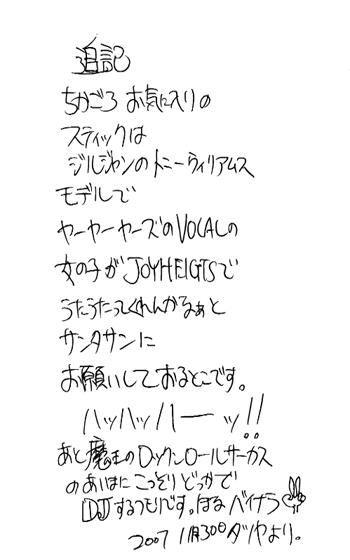 追記
ちかごろ お気に入りの
スティックは
ジルジャンのトニーウィリアムス
モデルで
ヤーヤーヤーズのVOCALの
女の子が JOYHEIGTSで
うたうたってくれんかなぁと
サンタサンに
お願いしておるとこです。
ハッハッハーーッ!!
あと魔王のロックンロールサーカス
のあいまに こっそりどっかで
DJするつもりです。ほな バイナラ
2007 11月30日 タツヤより。